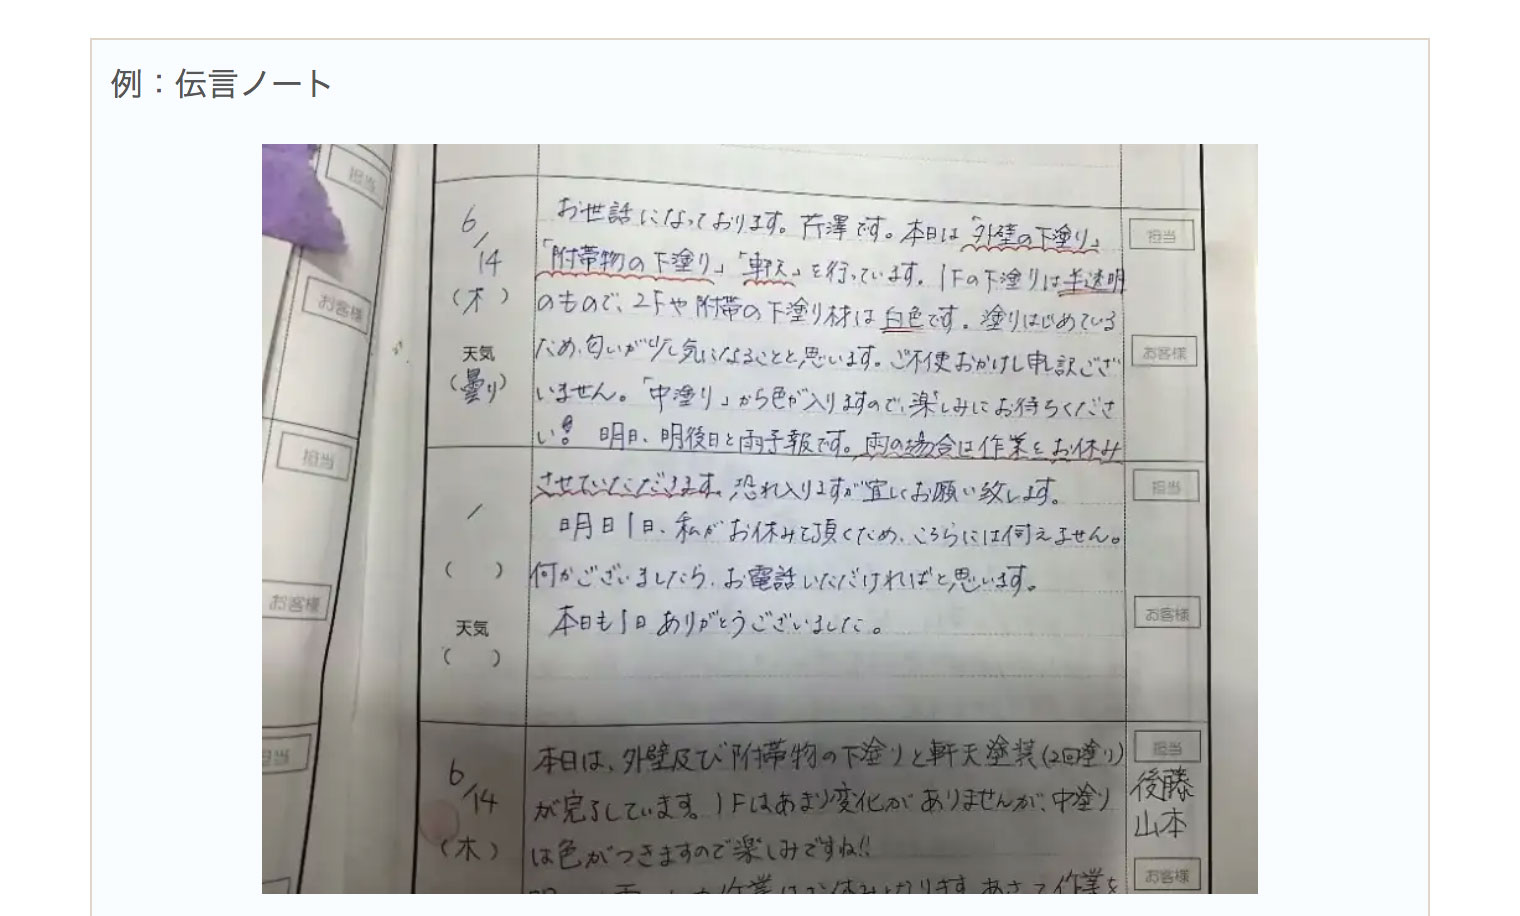 例：伝言ノート
担当
お客様
担当
お客様
担当
6/14
(木)
天気
(曇り)
お世話になっております。芹澤です。本日は「外壁の下塗り」
「附帯物の下塗り」「軒天」を行っています。1Fの下塗りは半透明
のもので、2Fや附帯の下塗り材は白色です。塗りはじめている
ため、匂いが少し気になることと思います。ご不便おかけし申し訳ござ
いません。「中塗り」から色が入りますので、楽しみにお待ちくださ
い！ 明日、明後日と雨予報です。雨の場合は作業をお休み
担当
お客様
/
( )
天気
( )
させていただきます。恐れ入りますが宜しくお願い致します。
明日1日、私がお休みを頂くため、こちらには伺えません。
何かございましたら、お電話いただければと思います。
本日も1日ありがとうございました。
担当
お客様
6/14
(木)
本日は、外壁及び附帯物の下塗りと軒天塗装(2回塗り)
が完了しています。1Fはあまり変化がありませんが、中塗り
は色がつきますので楽しみですね!!
担当
後藤
山本
お客様